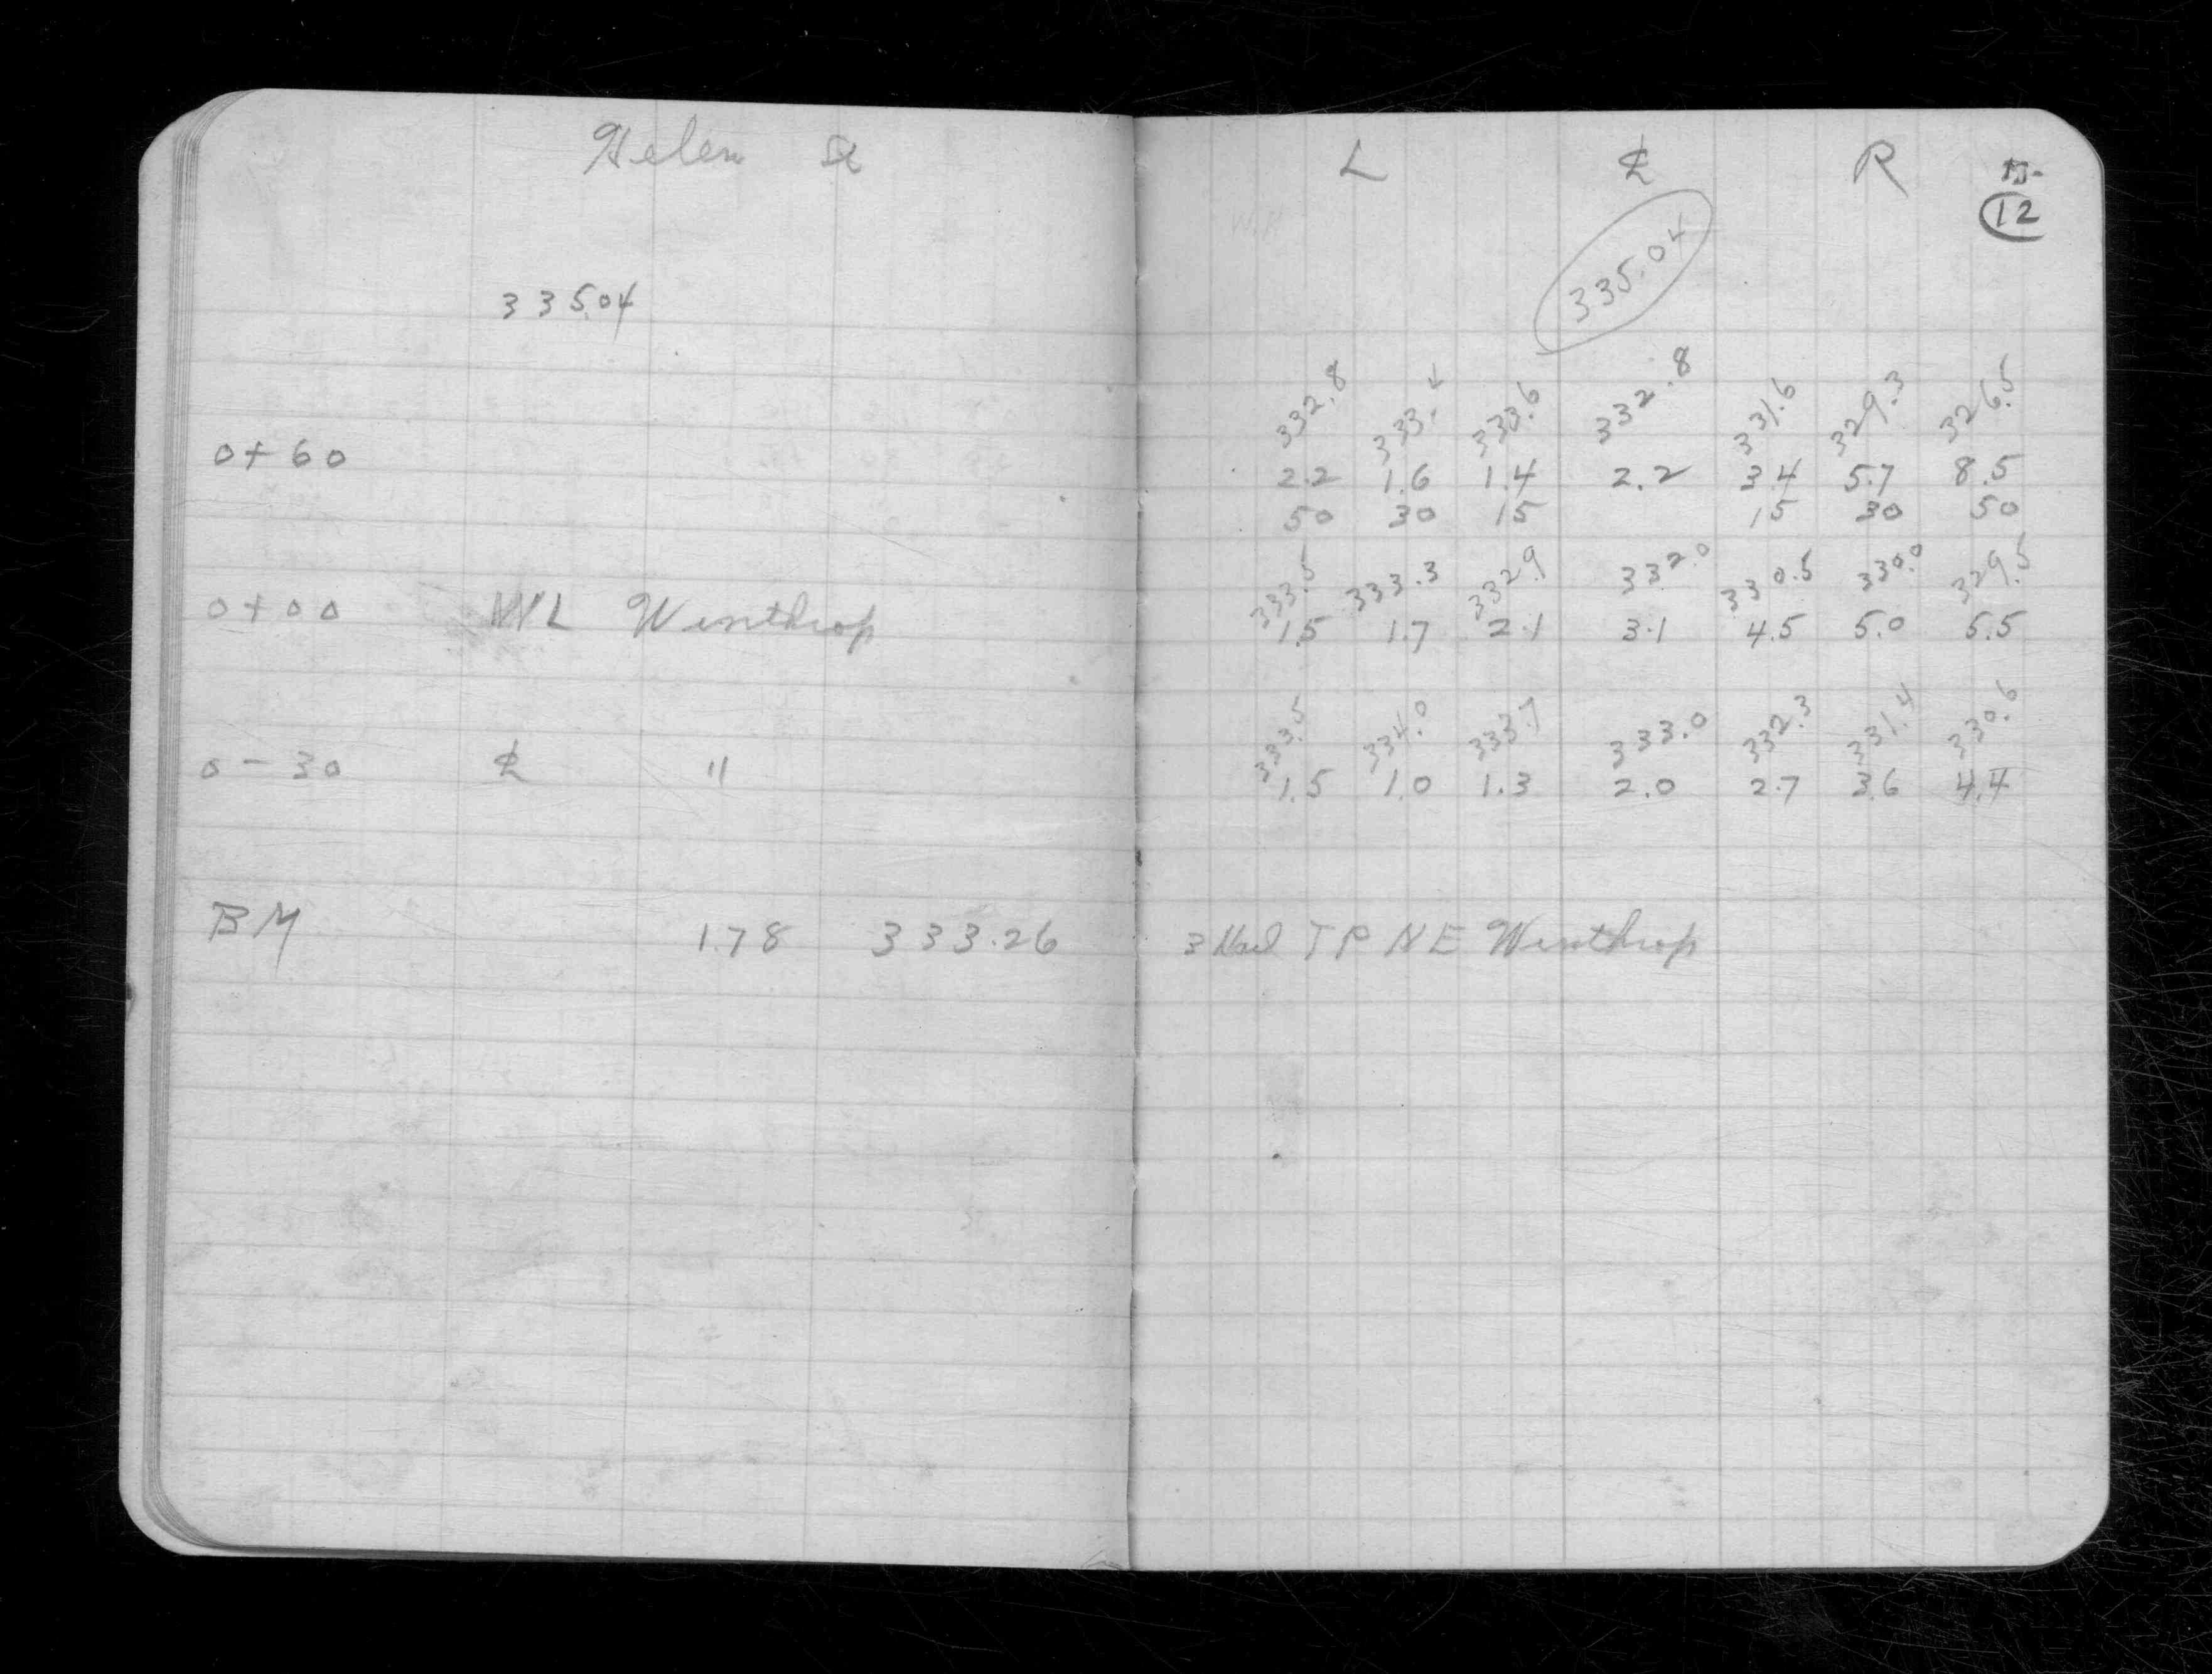 Helen St
L ℄ R
12
335.04
335.04
332.8 333.4 333.6 332.8 331.6 329.3 326.5
0+60 2.2 1.6 1.4 2.2 3.4 5.7 8.5
50 30 15 15 30 50
333.5 333.3 332.9 332.0 330.5 330.0 329.5
0+00 WL Winthrop 1.5 1.7 2.1 3.1 4.5 5.0 5.5
333.5 334.0 333.7 333.0 332.3 331.4 330.6
0-30 ℄ " 1.5 1.0 1.3 2.0 2.7 3.6 4.4
BM 1.78 333.26 3 Nail TP NE Winthrop